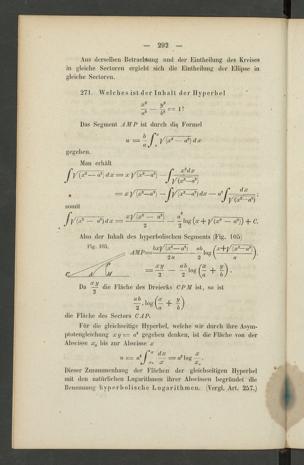 — 292 —
Aus derselben Betrachtung und der Eintheilung des Kreises
in gleiche Sectoren ergiebt sich die Eintheilung der Ellipse in
gleiche Sectoren.
271. Welches ist der Inhalt der Hyperbel
x²/a² − y²/b² = 1?
Das Segment AMP ist durch die Formel
u = b/a ∫ₐˣ √(x²−a²) dx
gegeben.
Man erhält
∫√(x²−a²) dx = x√(x²−a²) − ∫ x²dx/√(x²−a²)
= x√(x²−a²) − ∫√(x²−a²) dx − a²∫ dx/√(x²−a²);
somit
∫√(x²−a²) dx = x√(x²−a²)/2 − a²/2 log(x+√(x²−a²)) + C.
Also der Inhalt des hyperbolischen Segments (Fig. 105)
Fig. 105.
AMP = bx√(x²−a²)/2a − ab/2 log((x+√(x²−a²))/a)
= xy/2 − ab/2 log(x/a + y/b).
Da xy/2 die Fläche des Dreiecks CPM ist, so ist
ab/2 · log(x/a + y/b)
die Fläche des Sectors CAP.
Für die gleichseitige Hyperbel, welche wir durch ihre Asym-
ptotengleichung xy = a² gegeben denken, ist die Fläche von der
Abscisse x₀ bis zur Abscisse x
u = a² ∫ₓ₀ˣ dx/x = a² log x/x₀.
Dieser Zusammenhang der Flächen der gleichseitigen Hyperbel
mit den natürlichen Logarithmen ihrer Abscissen begründet die
Benennung hyperbolische Logarithmen. (Vergl. Art. 257.)